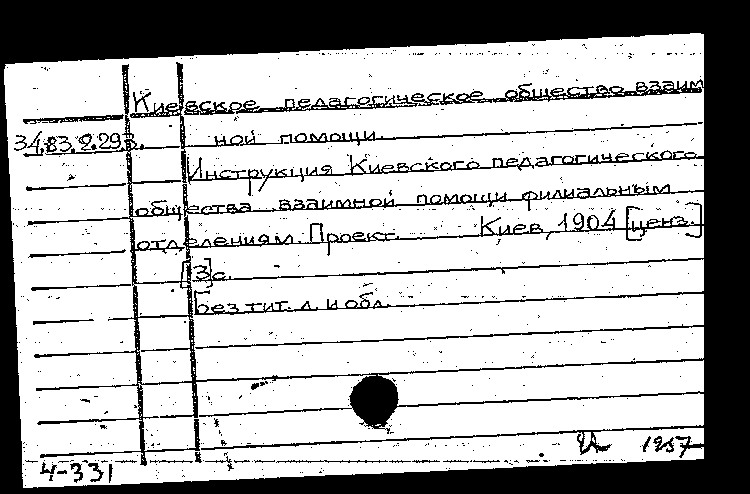 Киевское педагогическое общество взаим
34.83.2.293.
ной помощи.
Инструкция Киевского педагогического
общества взаимной помощи филиальным
отделениям. Проект. Киев, 1904 [ценз.]
[3]с.
Без тит. л. и обл.
1957
4-331